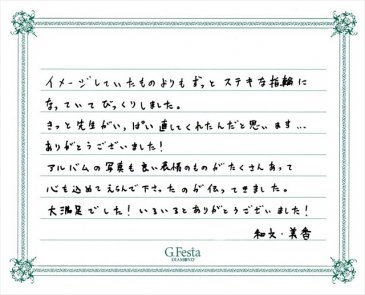 イメージしていたものよりもずっと ステキな指輪に
なっていて びっくりしました。
きっと先生がいっぱい直してくれたんだと思います…
ありがとうございました!
アルバムの写真も良い表情のものが たくさんあって
心を込めて えらんで下さったのが伝ってきました。
大満足でした! いろいろとありがとうございました!
和文・美香
G.Festa
DIAMOND